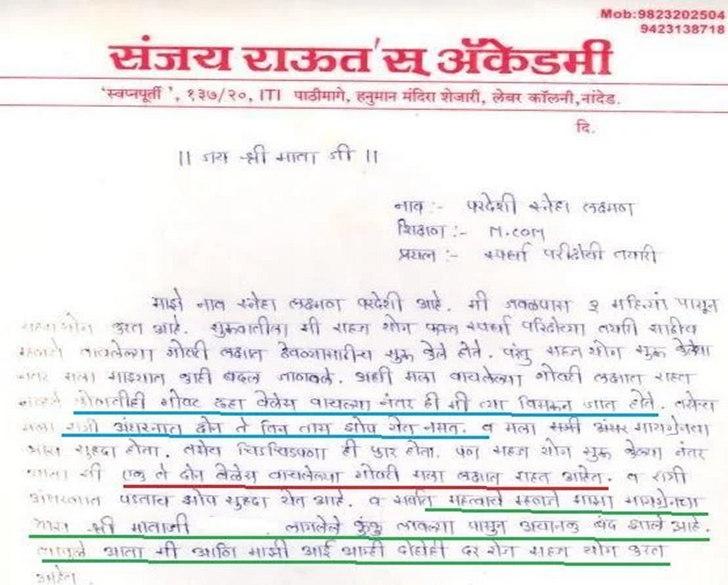 Mob:9823202504
9423138718
संजय राऊत'स् ॲकेडमी
'स्वप्नपूर्ती', १३७/२०, ITI पाठीमागे, हनुमान मंदिरा शेजारी, लेबर कॉलनी, नांदेड.
दि.
।। जय श्री माता जी ।।
नाव :- परदेशी स्नेहा लक्ष्मण
शिक्षण :- M.COM
प्रयत्न :- स्पर्धा परीक्षेची तयारी
माझे नाव स्नेहा लक्ष्मण परदेशी आहे. मी जवळपास ३ महिन्यां पासून
सहजयोग करत आहे. सुरुवातीला मी सहज योग फक्त स्पर्धा परिक्षेच्या तयारी साठीच
म्हणजे वाचलेल्या गोष्टी लक्षात ठेवण्यासाठीच सुरू केले होते. परंतु सहज योग सुरू केल्या
नंतर मला माझ्यात काही बदल जाणवले. आधी मला वाचलेल्या गोष्टी लक्षात राहत
नव्हते कोणतीही गोष्ट दहा वेळेस वाचल्या नंतर ही मी त्या विसरून जात होते. तसेच
मला रात्री अंथरुनात दोन ते तिन तास झोप येत नसत. व मला मायग्रेनचा
त्रास सुद्धा होता. तसेच चिडचिडपणा ही फार होता. पण सहज योग सुरू केल्या नंतर
आता मी एक ते दोन वेळेस वाचलेल्या गोष्टी मला लक्षात राहत आहेत. व रात्री
अंथरुनात पडताच झोप सुद्धा येत आहे. व सर्वात महत्वाचे म्हणजे माझा मायग्रेनचा
त्रास श्री माताजी लागलेले कुंकु लावल्या पासून अचानक बंद झाले आहे.
त्यामुळे आता मी आणि माझी आई आम्ही दोघेही दर रोज सहज योग करत
आहेत.